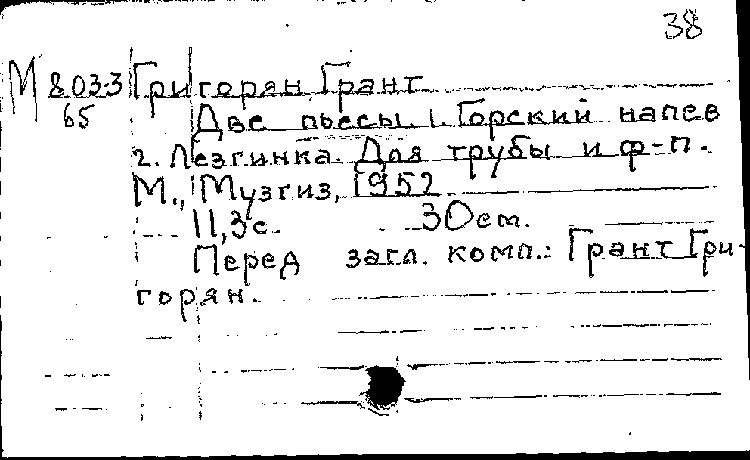 38
М 803-3 Григорян Грант
65 Две пьесы. 1. Горский напев
2. Лезгинка. Для трубы и ф-п.
М., Музгиз, 1952
11,3 с. 30 см.
Перед загл. комп.: Грант Гри-
горян.